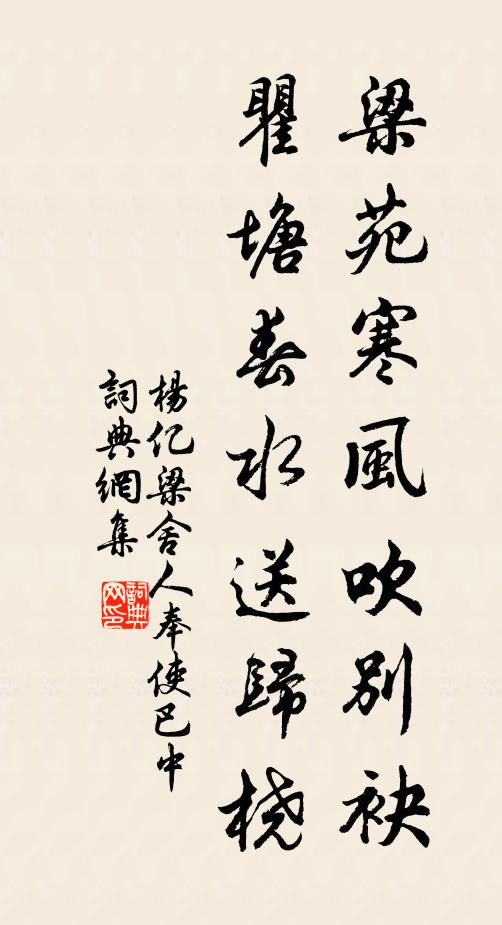 梁苑寒風吹別袂
瞿塘春水送歸橈
楊億梁舍人奉使巴中
詞典網集
詞典网印